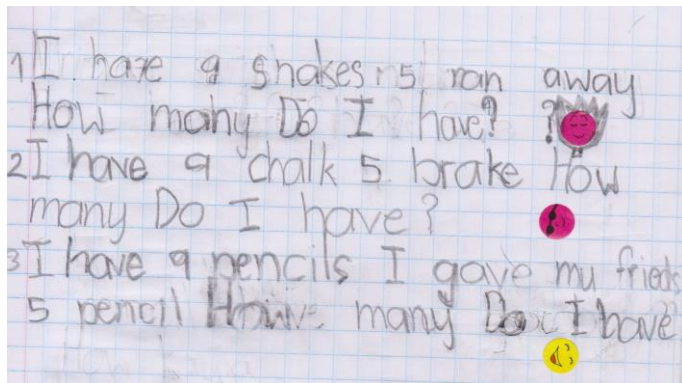 1 I have 9 snakes. 5 ran away
How many Do I have? ?
2 I have 9 chalk 5. brake How
many Do I have?
3 I have 9 pencils I gave my frieds
5 pencil How many Do I have